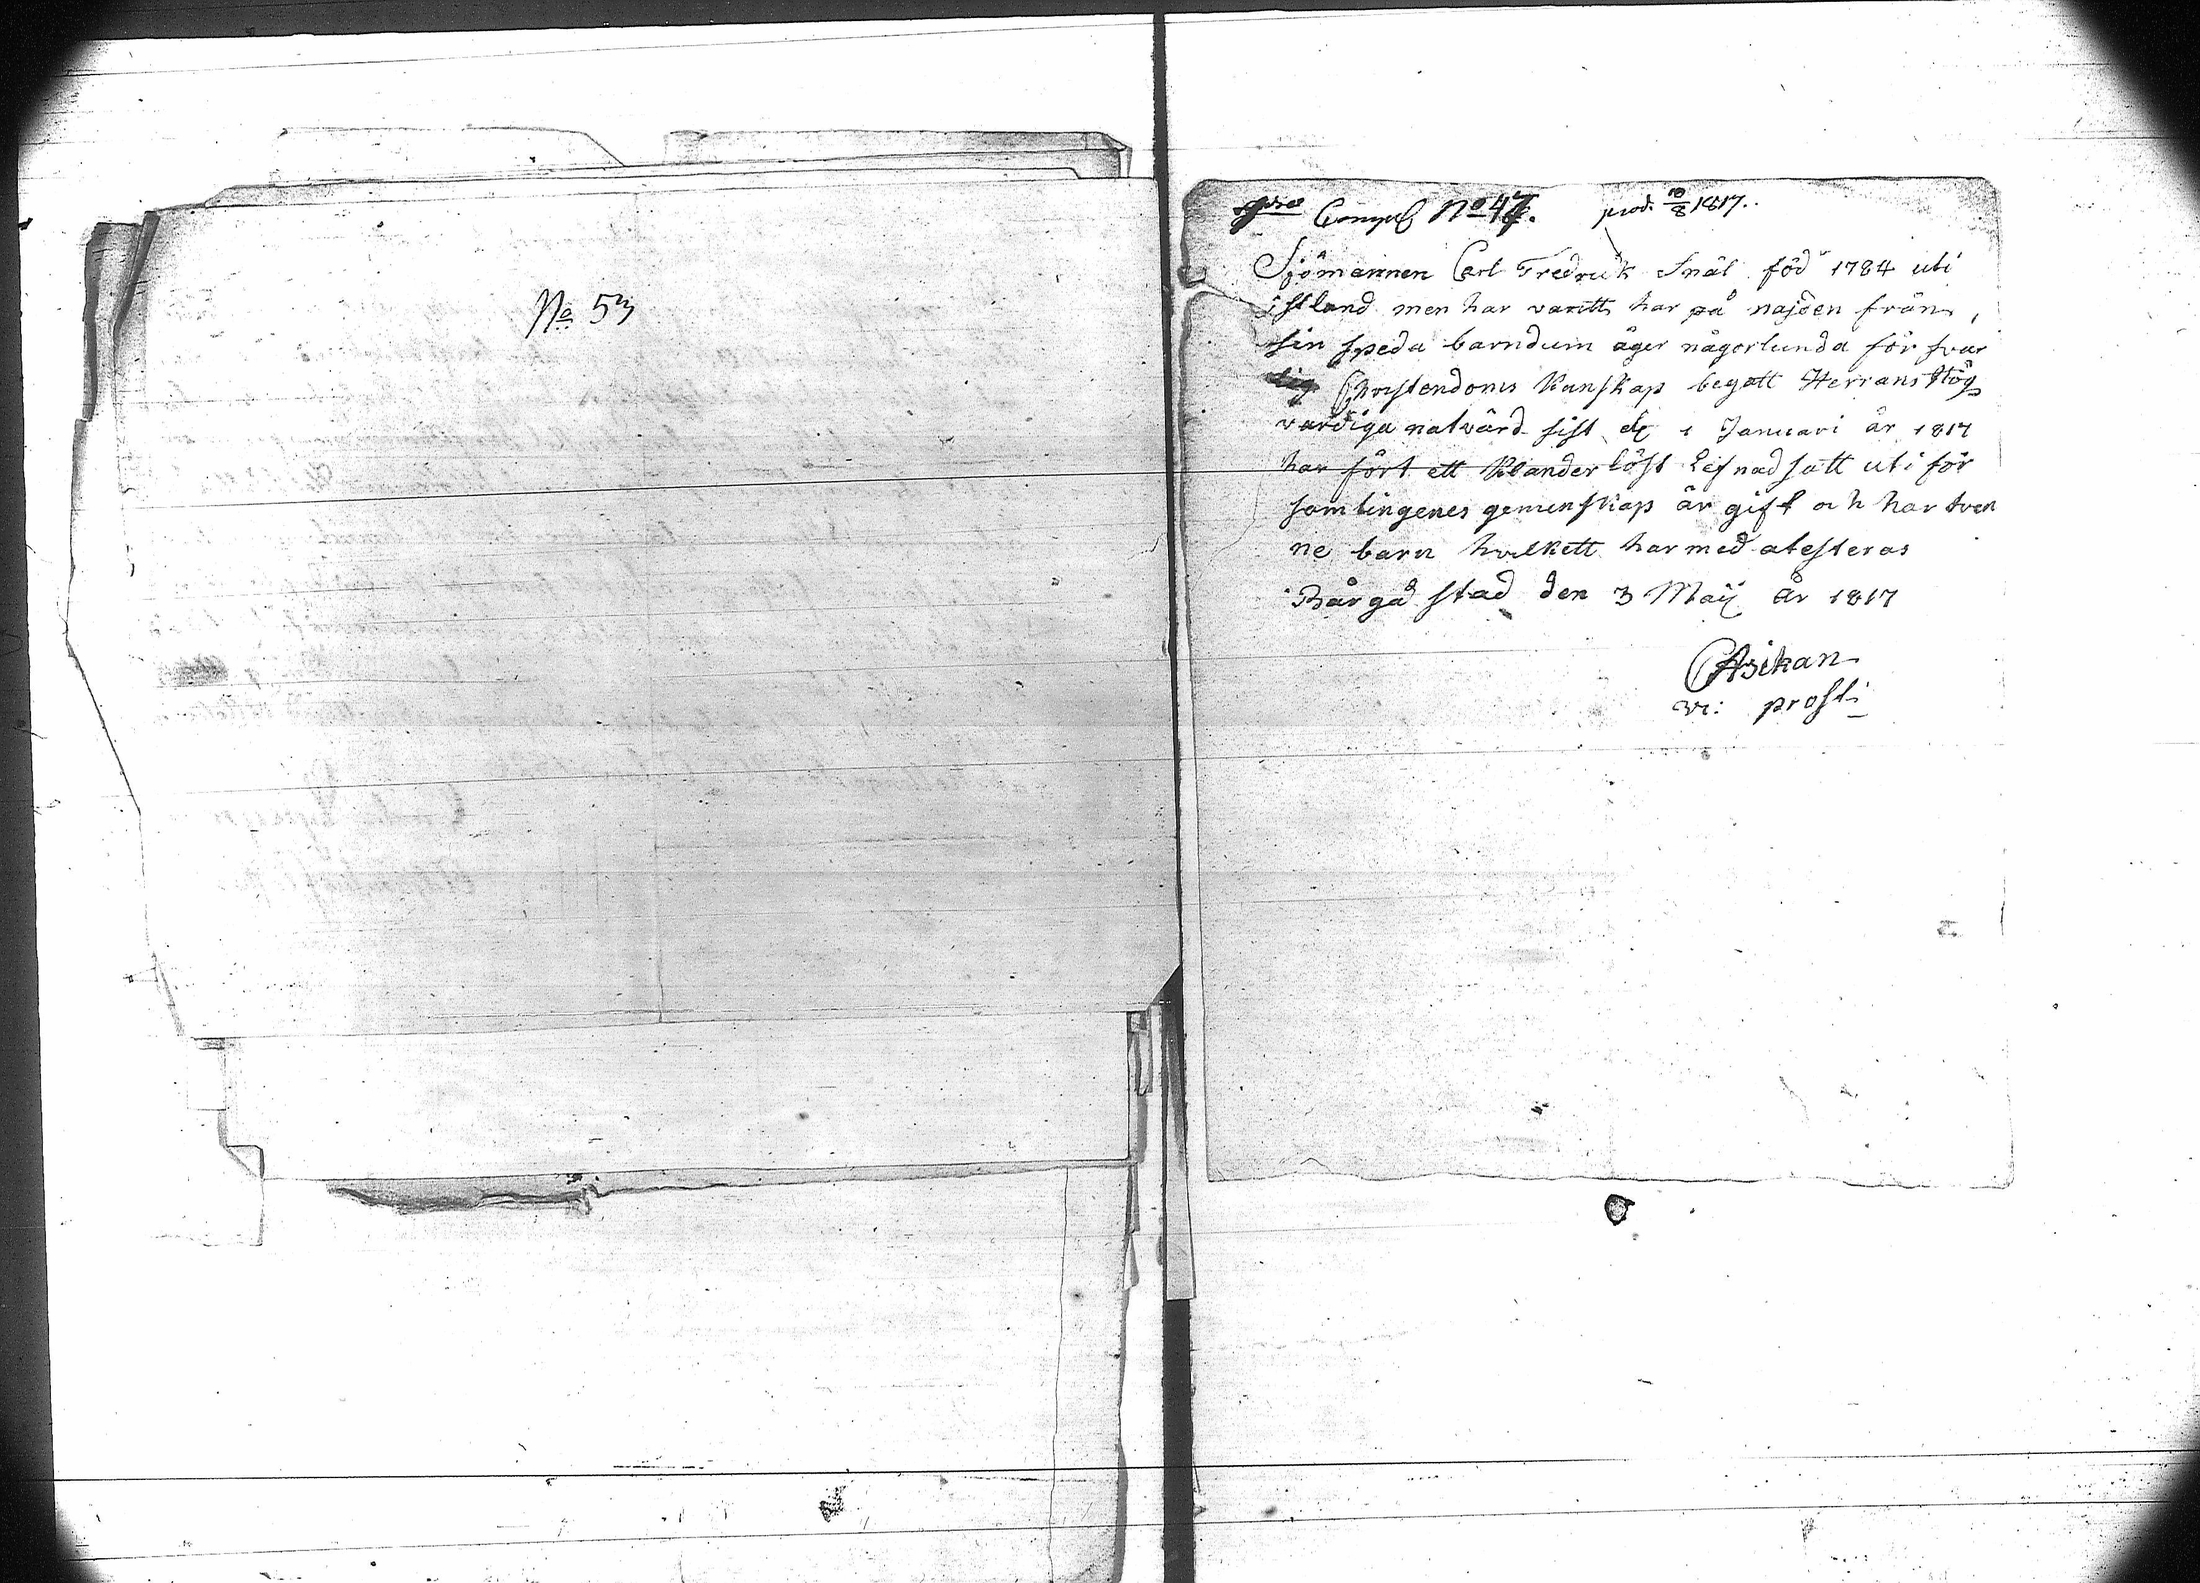 No 53
No 47. prod. 10/8 1817.
Sjömannen Carl Fredrick Snäl född 1784 uti
istland men har varitt har på najden från
sin speda barndum äger någorlunda för svar
lig Christendoms Kunskap begått Herrans Hög
vardiga natvärd sist d 1 Januari år 1817
har fört ett Klanderlöst Lefnad satt uti för
samlingenes gemenskap är gift och har tven
ne barn hvilkett harmed atesteras
Bårgå stad den 3 Maij År 1817
CAsikan
vi: prosti